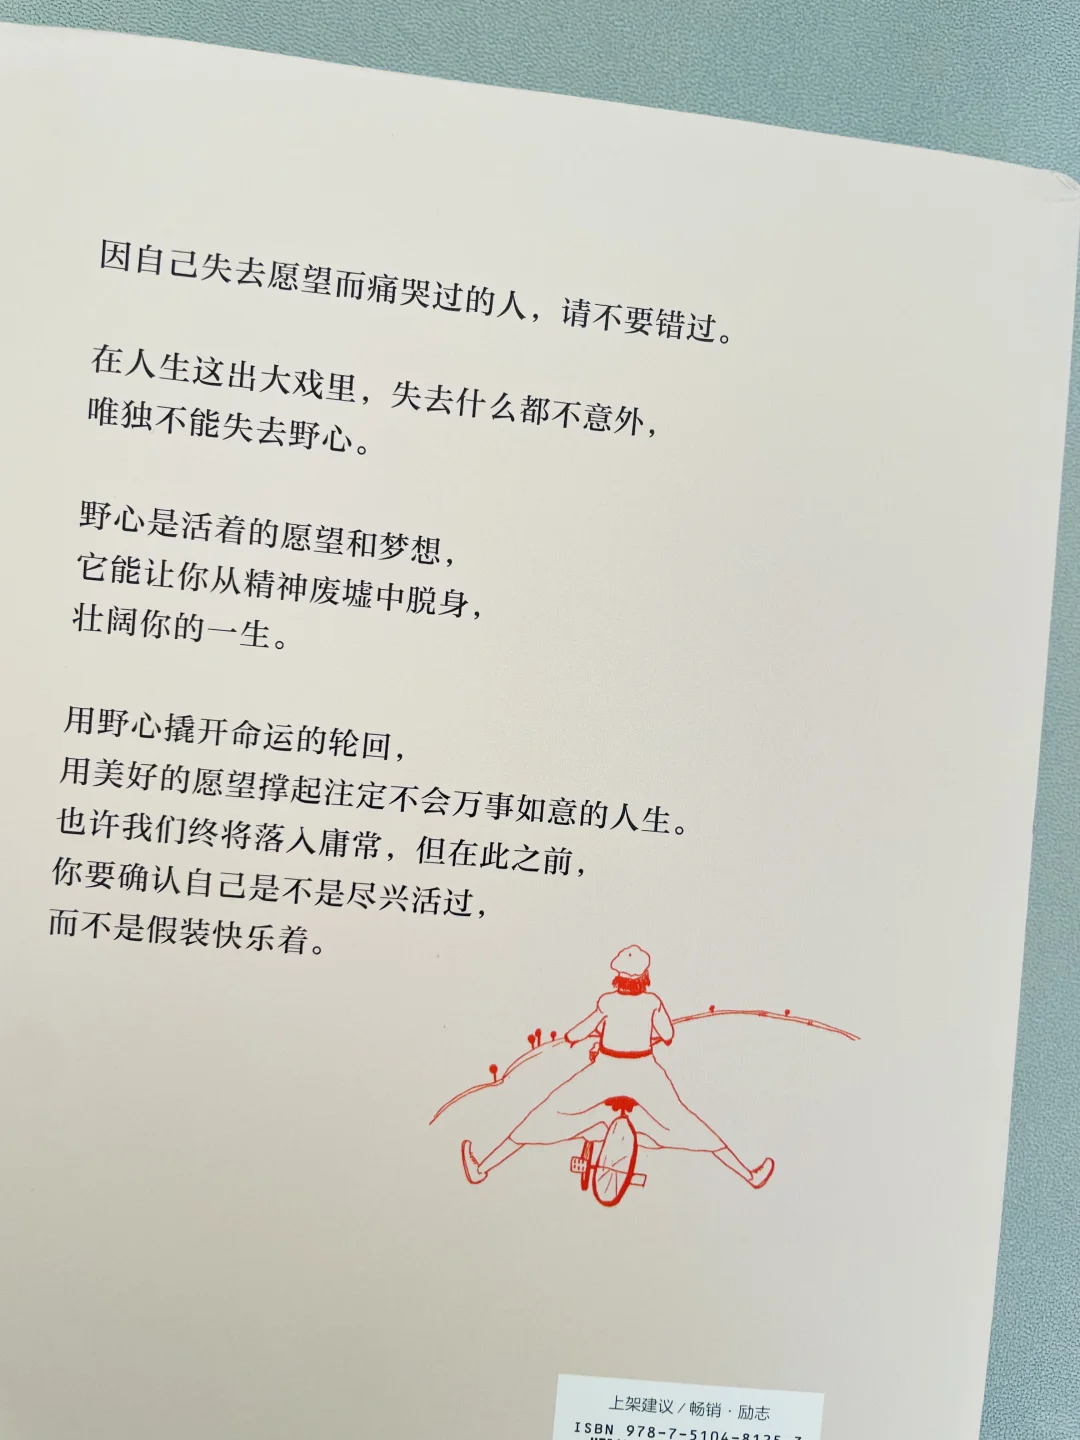 因自己失去愿望而痛哭过的人，请不要错过。
在人生这出大戏里，失去什么都不意外，
唯独不能失去野心。
野心是活着的愿望和梦想，
它能让你从精神废墟中脱身，
壮阔你的一生。
用野心撬开命运的轮回，
用美好的愿望撑起注定不会万事如意的人生。
也许我们终将落入庸常，但在此之前，
你要确认自己是不是尽兴活过，
而不是假装快乐着。
上架建议/畅销·励志
ISBN 978-7-5104-8125-3